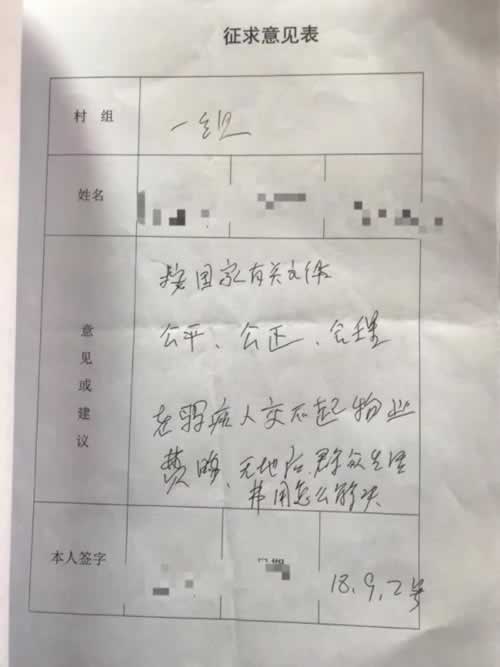 征求意见表
村 组
一组
姓名
意见或建议
按国家有关文件
公平、公正、合理
老弱病人交不起物业
费用、无地后群众生活
费用怎么解决
本人签字
日期
18.9.2号